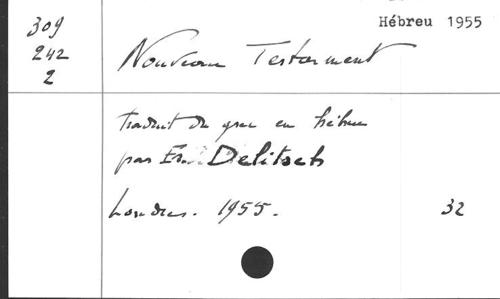 Hébreu 1955
309
242
2
Nouveau Testament
traduit du grec en hébreu
par Delitsch
Londres. 1955.
32